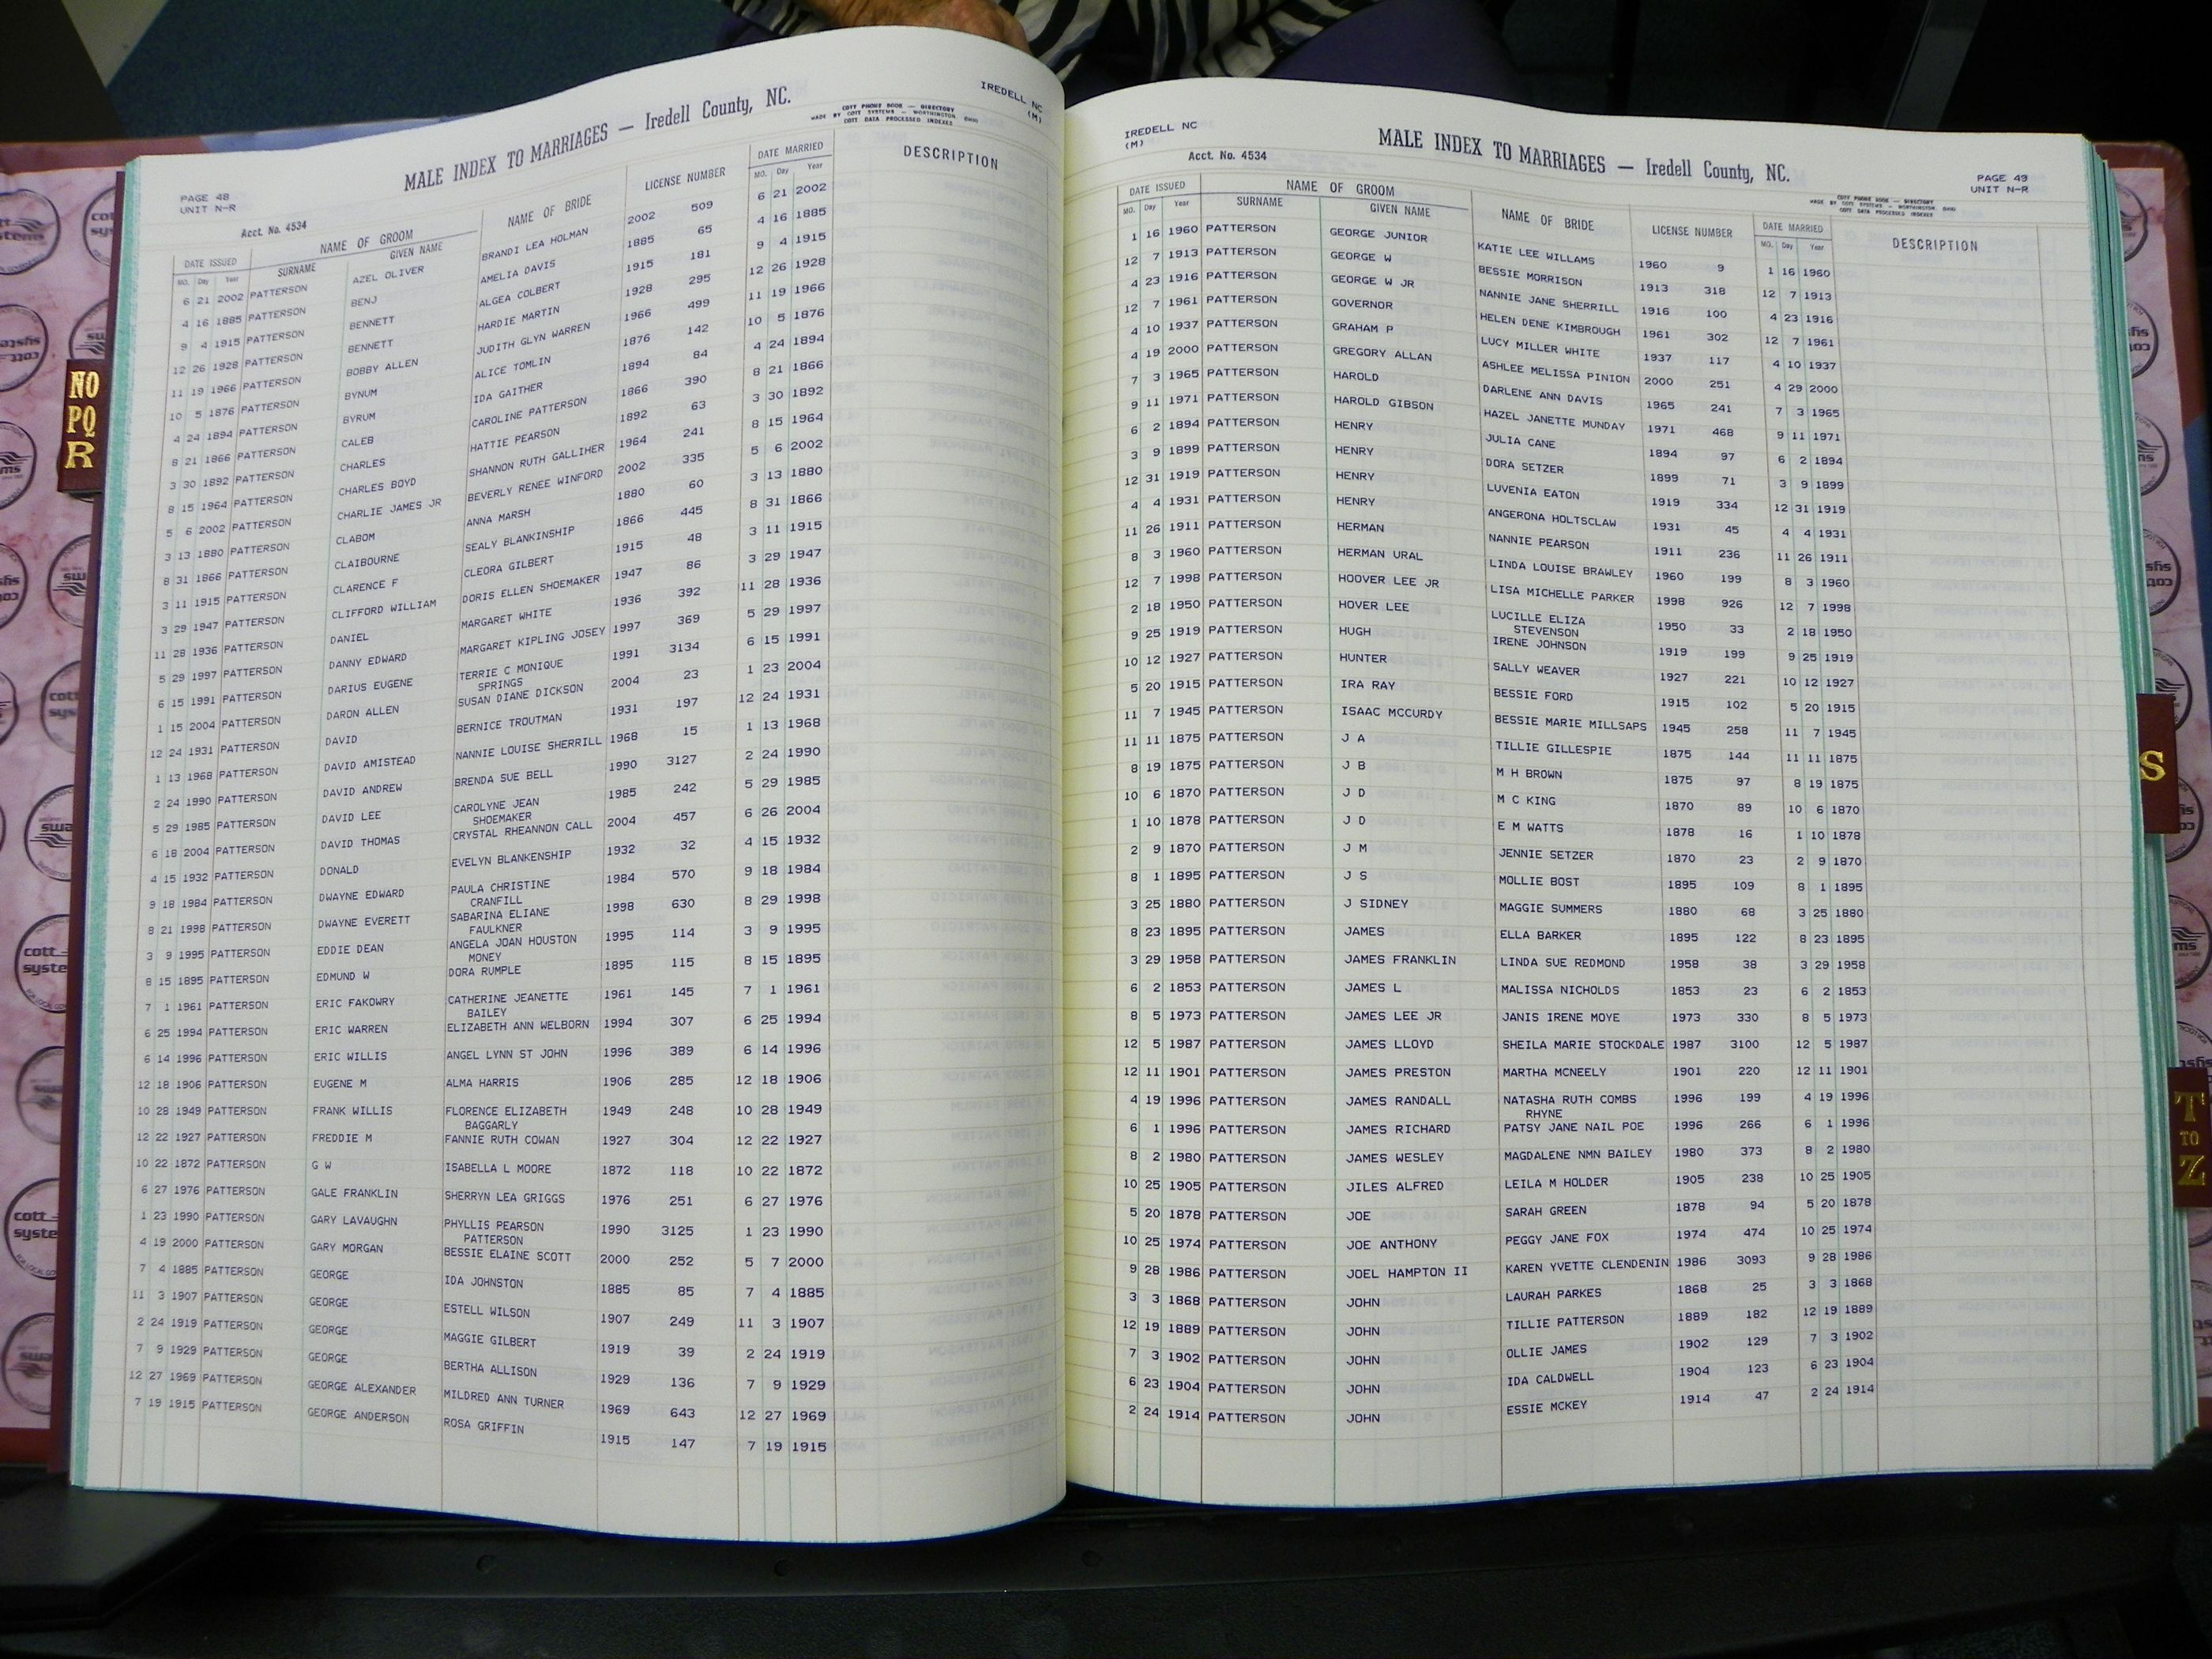 IREDELL NC
(M)
MALE INDEX TO MARRIAGES — Iredell County, NC.
COTT PHONE BOOK — DIRECTORY
MADE BY COTT SYSTEMS — WORTHINGTON, OHIO
COTT DATA PROCESSED INDEXES
PAGE 48
UNIT N-R
Acct. No. 4534
DATE ISSUED NAME OF GROOM NAME OF BRIDE LICENSE NUMBER DATE MARRIED DESCRIPTION
MO. Day Year SURNAME GIVEN NAME MO. Day Year
6 21 2002 PATTERSON AZEL OLIVER BRANDI LEA HOLMAN 2002 509 6 21 2002
4 16 1885 PATTERSON BENJ AMELIA DAVIS 1885 65 4 16 1885
9 4 1915 PATTERSON BENNETT ALGEA COLBERT 1915 181 9 4 1915
12 26 1928 PATTERSON BENNETT HARDIE MARTIN 1928 295 12 26 1928
11 19 1966 PATTERSON BOBBY ALLEN JUDITH GLYN WARREN 1966 499 11 19 1966
10 5 1876 PATTERSON BYNUM ALICE TOMLIN 1876 142 10 5 1876
4 24 1894 PATTERSON BYRUM IDA GAITHER 1894 84 4 24 1894
8 21 1866 PATTERSON CALEB CAROLINE PATTERSON 1866 390 8 21 1866
3 30 1892 PATTERSON CHARLES HATTIE PEARSON 1892 63 3 30 1892
8 15 1964 PATTERSON CHARLES BOYD SHANNON RUTH GALLIHER 1964 241 8 15 1964
5 6 2002 PATTERSON CHARLIE JAMES JR BEVERLY RENEE WINFORD 2002 335 5 6 2002
3 13 1880 PATTERSON CLABOM ANNA MARSH 1880 60 3 13 1880
8 31 1866 PATTERSON CLAIBOURNE SEALY BLANKINSHIP 1866 445 8 31 1866
3 11 1915 PATTERSON CLARENCE F CLEORA GILBERT 1915 48 3 11 1915
3 29 1947 PATTERSON CLIFFORD WILLIAM DORIS ELLEN SHOEMAKER 1947 86 3 29 1947
11 28 1936 PATTERSON DANIEL MARGARET WHITE 1936 392 11 28 1936
5 29 1997 PATTERSON DANNY EDWARD MARGARET KIPLING JOSEY 1997 369 5 29 1997
6 15 1991 PATTERSON DARIUS EUGENE TERRIE C MONIQUE 1991 3134 6 15 1991
SPRINGS
1 15 2004 PATTERSON DARON ALLEN SUSAN DIANE DICKSON 2004 23 1 23 2004
12 24 1931 PATTERSON DAVID BERNICE TROUTMAN 1931 197 12 24 1931
1 13 1968 PATTERSON DAVID AMISTEAD NANNIE LOUISE SHERRILL 1968 15 1 13 1968
2 24 1990 PATTERSON DAVID ANDREW BRENDA SUE BELL 1990 3127 2 24 1990
5 29 1985 PATTERSON DAVID LEE CAROLYNE JEAN 1985 242 5 29 1985
SHOEMAKER
6 18 2004 PATTERSON DAVID THOMAS CRYSTAL RHEANNON CALL 2004 457 6 26 2004
4 15 1932 PATTERSON DONALD EVELYN BLANKENSHIP 1932 32 4 15 1932
9 18 1984 PATTERSON DWAYNE EDWARD PAULA CHRISTINE 1984 570 9 18 1984
CRANFILL
8 21 1998 PATTERSON DWAYNE EVERETT SABARINA ELIANE 1998 630 8 29 1998
FAULKNER
3 9 1995 PATTERSON EDDIE DEAN ANGELA JOAN HOUSTON 1995 114 3 9 1995
MONEY
8 15 1895 PATTERSON EDMUND W DORA RUMPLE 1895 115 8 15 1895
7 1 1961 PATTERSON ERIC FAKOWRY CATHERINE JEANETTE 1961 145 7 1 1961
BAILEY
6 25 1994 PATTERSON ERIC WARREN ELIZABETH ANN WELBORN 1994 307 6 25 1994
6 14 1996 PATTERSON ERIC WILLIS ANGEL LYNN ST JOHN 1996 389 6 14 1996
12 18 1906 PATTERSON EUGENE M ALMA HARRIS 1906 285 12 18 1906
10 28 1949 PATTERSON FRANK WILLIS FLORENCE ELIZABETH 1949 248 10 28 1949
BAGGARLY
12 22 1927 PATTERSON FREDDIE M FANNIE RUTH COWAN 1927 304 12 22 1927
10 22 1872 PATTERSON G W ISABELLA L MOORE 1872 118 10 22 1872
6 27 1976 PATTERSON GALE FRANKLIN SHERRYN LEA GRIGGS 1976 251 6 27 1976
1 23 1990 PATTERSON GARY LAVAUGHN PHYLLIS PEARSON 1990 3125 1 23 1990
PATTERSON
4 19 2000 PATTERSON GARY MORGAN BESSIE ELAINE SCOTT 2000 252 5 7 2000
7 4 1885 PATTERSON GEORGE IDA JOHNSTON 1885 85 7 4 1885
11 3 1907 PATTERSON GEORGE ESTELL WILSON 1907 249 11 3 1907
2 24 1919 PATTERSON GEORGE MAGGIE GILBERT 1919 39 2 24 1919
7 9 1929 PATTERSON GEORGE BERTHA ALLISON 1929 136 7 9 1929
12 27 1969 PATTERSON GEORGE ALEXANDER MILDRED ANN TURNER 1969 643 12 27 1969
7 19 1915 PATTERSON GEORGE ANDERSON ROSA GRIFFIN 1915 147 7 19 1915
IREDELL NC
(M)
MALE INDEX TO MARRIAGES — Iredell County, NC.
Acct. No. 4534
PAGE 49
UNIT N-R
COTT PHONE BOOK — DIRECTORY
MADE BY COTT SYSTEMS — WORTHINGTON, OHIO
COTT DATA PROCESSED INDEXES
DATE ISSUED NAME OF GROOM NAME OF BRIDE LICENSE NUMBER DATE MARRIED DESCRIPTION
MO. Day Year SURNAME GIVEN NAME MO. Day Year
1 16 1960 PATTERSON GEORGE JUNIOR KATIE LEE WILLAMS 1960 9 1 16 1960
12 7 1913 PATTERSON GEORGE W BESSIE MORRISON 1913 318 12 7 1913
4 23 1916 PATTERSON GEORGE W JR NANNIE JANE SHERRILL 1916 100 4 23 1916
12 7 1961 PATTERSON GOVERNOR HELEN DENE KIMBROUGH 1961 302 12 7 1961
4 10 1937 PATTERSON GRAHAM P LUCY MILLER WHITE 1937 117 4 10 1937
4 19 2000 PATTERSON GREGORY ALLAN ASHLEE MELISSA PINION 2000 251 4 29 2000
7 3 1965 PATTERSON HAROLD DARLENE ANN DAVIS 1965 241 7 3 1965
9 11 1971 PATTERSON HAROLD GIBSON HAZEL JANETTE MUNDAY 1971 468 9 11 1971
6 2 1894 PATTERSON HENRY JULIA CANE 1894 97 6 2 1894
3 9 1899 PATTERSON HENRY DORA SETZER 1899 71 3 9 1899
12 31 1919 PATTERSON HENRY LUVENIA EATON 1919 334 12 31 1919
4 4 1931 PATTERSON HENRY ANGERONA HOLTSCLAW 1931 45 4 4 1931
11 26 1911 PATTERSON HERMAN NANNIE PEARSON 1911 236 11 26 1911
8 3 1960 PATTERSON HERMAN URAL LINDA LOUISE BRAWLEY 1960 199 8 3 1960
12 7 1998 PATTERSON HOOVER LEE JR LISA MICHELLE PARKER 1998 926 12 7 1998
2 18 1950 PATTERSON HOVER LEE LUCILLE ELIZA 1950 33 2 18 1950
STEVENSON
9 25 1919 PATTERSON HUGH IRENE JOHNSON 1919 199 9 25 1919
10 12 1927 PATTERSON HUNTER SALLY WEAVER 1927 221 10 12 1927
5 20 1915 PATTERSON IRA RAY BESSIE FORD 1915 102 5 20 1915
11 7 1945 PATTERSON ISAAC MCCURDY BESSIE MARIE MILLSAPS 1945 258 11 7 1945
11 11 1875 PATTERSON J A TILLIE GILLESPIE 1875 144 11 11 1875
8 19 1875 PATTERSON J B M H BROWN 1875 97 8 19 1875
10 6 1870 PATTERSON J D M C KING 1870 89 10 6 1870
1 10 1878 PATTERSON J D E M WATTS 1878 16 1 10 1878
2 9 1870 PATTERSON J M JENNIE SETZER 1870 23 2 9 1870
8 1 1895 PATTERSON J S MOLLIE BOST 1895 109 8 1 1895
3 25 1880 PATTERSON J SIDNEY MAGGIE SUMMERS 1880 68 3 25 1880
8 23 1895 PATTERSON JAMES ELLA BARKER 1895 122 8 23 1895
3 29 1958 PATTERSON JAMES FRANKLIN LINDA SUE REDMOND 1958 38 3 29 1958
6 2 1853 PATTERSON JAMES L MALISSA NICHOLDS 1853 23 6 2 1853
8 5 1973 PATTERSON JAMES LEE JR JANIS IRENE MOYE 1973 330 8 5 1973
12 5 1987 PATTERSON JAMES LLOYD SHEILA MARIE STOCKDALE 1987 3100 12 5 1987
12 11 1901 PATTERSON JAMES PRESTON MARTHA MCNEELY 1901 220 12 11 1901
4 19 1996 PATTERSON JAMES RANDALL NATASHA RUTH COMBS 1996 199 4 19 1996
RHYNE
6 1 1996 PATTERSON JAMES RICHARD PATSY JANE NAIL POE 1996 266 6 1 1996
8 2 1980 PATTERSON JAMES WESLEY MAGDALENE NMN BAILEY 1980 373 8 2 1980
10 25 1905 PATTERSON JILES ALFRED LEILA M HOLDER 1905 238 10 25 1905
5 20 1878 PATTERSON JOE SARAH GREEN 1878 94 5 20 1878
10 25 1974 PATTERSON JOE ANTHONY PEGGY JANE FOX 1974 474 10 25 1974
9 28 1986 PATTERSON JOEL HAMPTON II KAREN YVETTE CLENDENIN 1986 3093 9 28 1986
3 3 1868 PATTERSON JOHN LAURAH PARKES 1868 25 3 3 1868
12 19 1889 PATTERSON JOHN TILLIE PATTERSON 1889 182 12 19 1889
7 3 1902 PATTERSON JOHN OLLIE JAMES 1902 129 7 3 1902
6 23 1904 PATTERSON JOHN IDA CALDWELL 1904 123 6 23 1904
2 24 1914 PATTERSON JOHN ESSIE MCKEY 1914 47 2 24 1914
NO
PQ
R
S
T
TO
Z
cott
systems